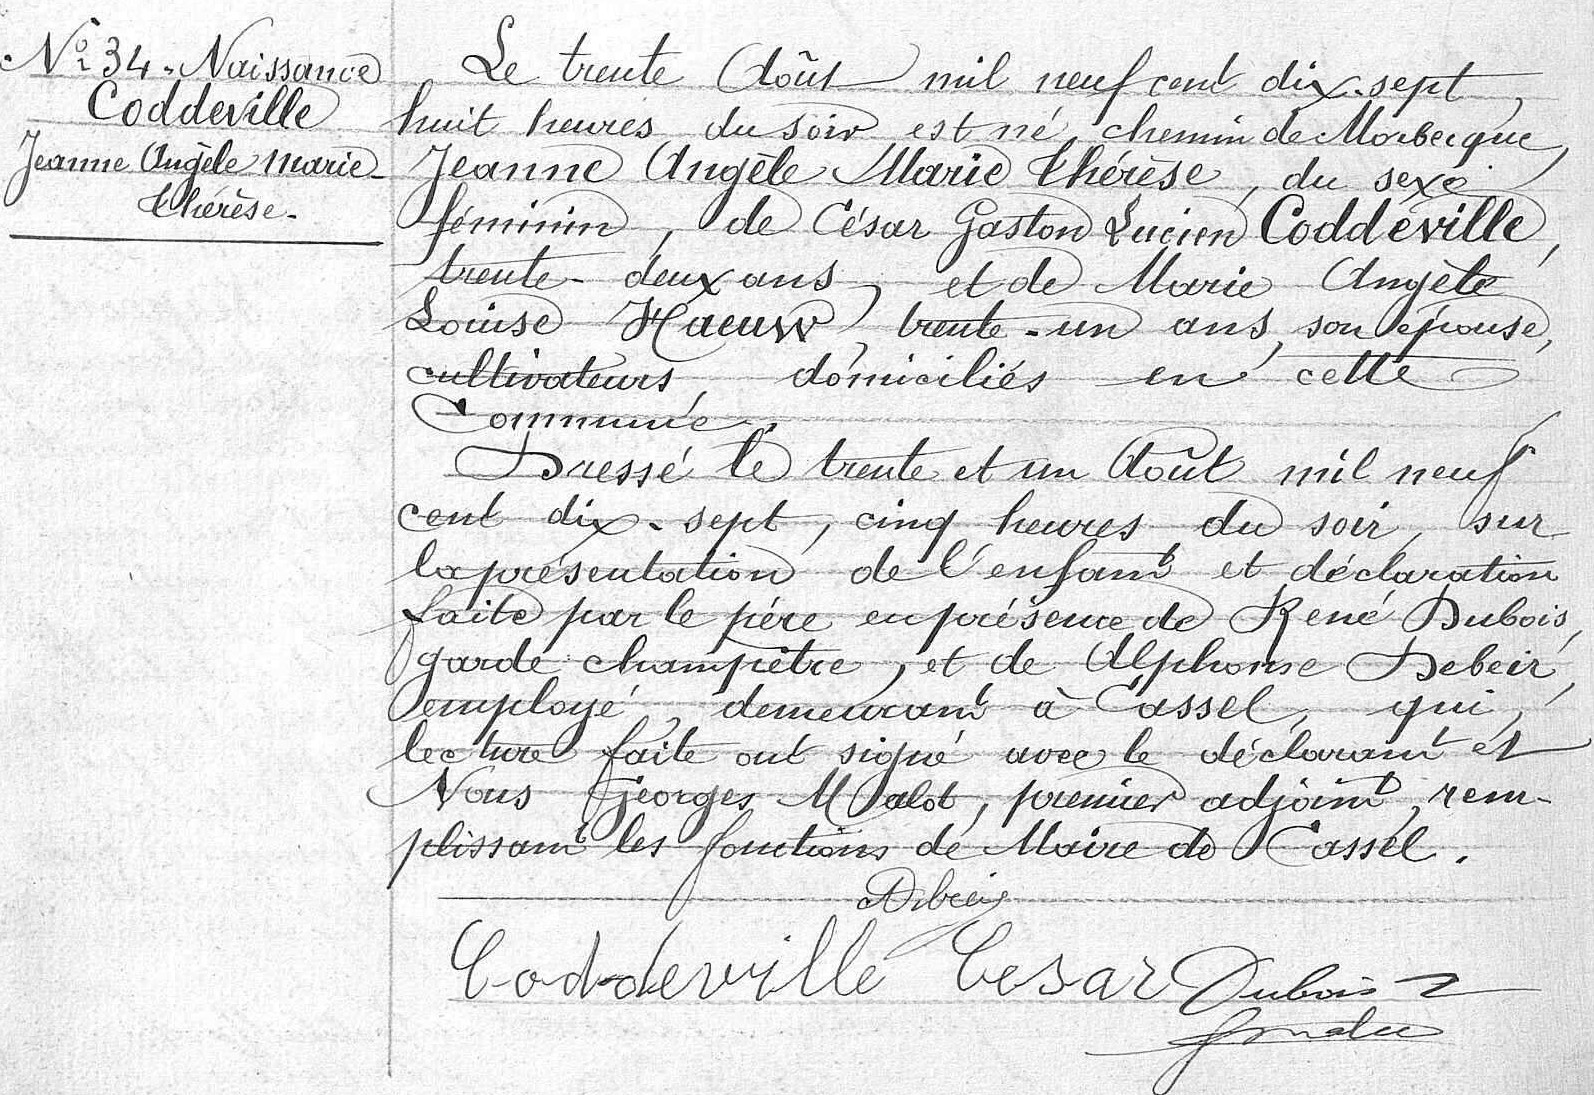 Nº 34. Naissance
Coddeville
Jeanne Angèle Marie-
thérèse.
Le trente Août mil neuf cent dix-sept,
huit heures du soir, est né, chemin de Morbecque,
Jeanne Angèle Marie thérèse, du sexe
féminin, de César Gaston Lucien Coddeville,
trente-deux ans, et de Marie Angèle
Louise Haeuw, trente-un ans, son épouse,
cultivateurs, domiciliés en cette
Commune.
Dressé le trente et un Août mil neuf
cent dix-sept, cinq heures du soir, sur
la présentation de l'enfant et déclaration
faite par le père en présence de René Dubois,
garde champêtre, et de Alphonse Debeir,
employé, demeurant à Cassel, qui,
lecture faite ont signé avec le déclarant et
Nous Georges Malot, premier adjoint, rem-
plissant les fonctions de Maire de Cassel.
Debeir
Coddeville Cesar Dubois